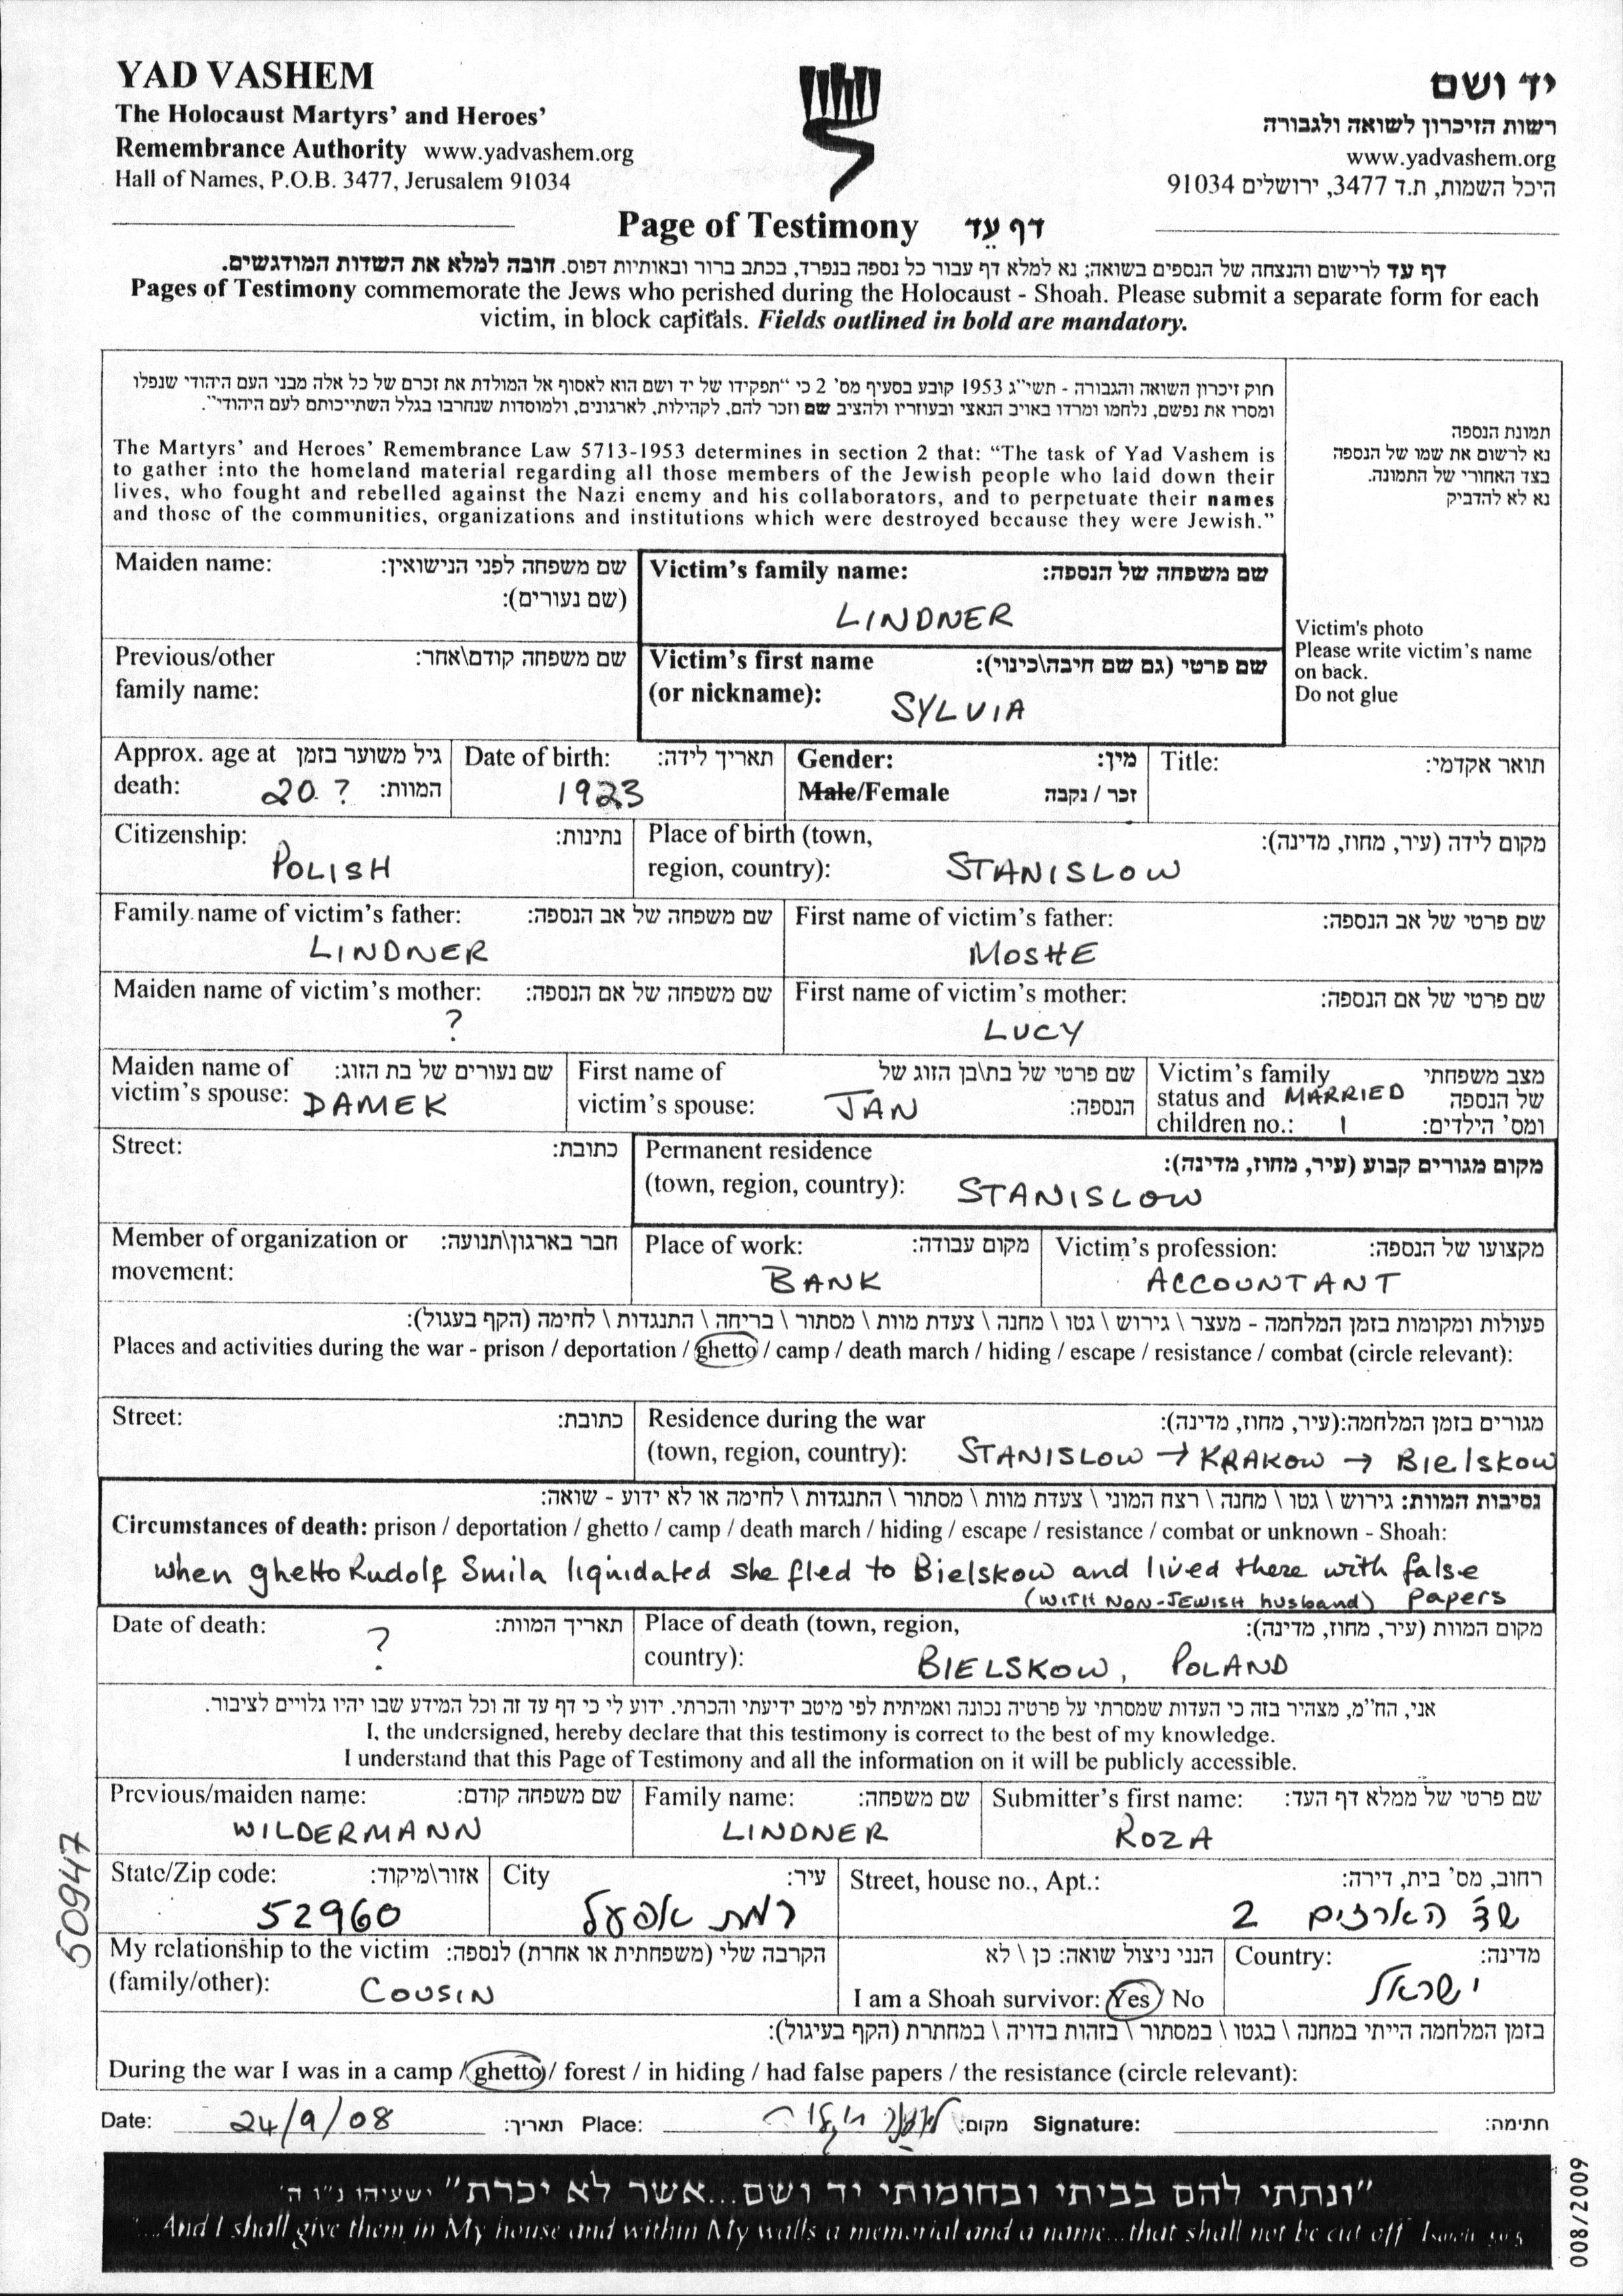 YAD VASHEM
The Holocaust Martyrs' and Heroes'
Remembrance Authority www.yadvashem.org
Hall of Names, P.O.B. 3477, Jerusalem 91034
יד ושם
רשות הזיכרון לשואה ולגבורה
www.yadvashem.org
היכל השמות, ת.ד 3477, ירושלים 91034
Page of Testimony דף עֵד
דף עד לרישום והנצחה של הנספים בשואה; נא למלא דף עבור כל נספה בנפרד, בכתב ברור ובאותיות דפוס. חובה למלא את השדות המודגשים.
Pages of Testimony commemorate the Jews who perished during the Holocaust - Shoah. Please submit a separate form for each
victim, in block capitals. Fields outlined in bold are mandatory.
חוק זיכרון השואה והגבורה - תשי"ג 1953 קובע בסעיף מס' 2 כי "תפקידו של יד ושם הוא לאסוף אל המולדת את זכרם של כל אלה מבני העם היהודי שנפלו
ומסרו את נפשם, נלחמו ומרדו באויב הנאצי ובעוזריו ולהציב שם וזכר להם, לקהילות, לארגונים, ולמוסדות שנחרבו בגלל השתייכותם לעם היהודי".
The Martyrs' and Heroes' Remembrance Law 5713-1953 determines in section 2 that: "The task of Yad Vashem is
to gather into the homeland material regarding all those members of the Jewish people who laid down their
lives, who fought and rebelled against the Nazi enemy and his collaborators, and to perpetuate their names
and those of the communities, organizations and institutions which were destroyed because they were Jewish."
תמונת הנספה
נא לרשום את שמו של הנספה
בצד האחורי של התמונה.
נא לא להדביק
Victim's photo
Please write victim's name
on back.
Do not glue
Maiden name: שם משפחה לפני הנישואין:
(שם נעורים):
Victim's family name: שם משפחה של הנספה:
LINDNER
Previous/other שם משפחה קודם\אחר:
family name:
Victim's first name שם פרטי (גם שם חיבה\כינוי):
(or nickname):
SYLVIA
Approx. age at גיל משוער בזמן
death: 20 ? המוות:
Date of birth: תאריך לידה:
1923
Gender: מין:
Male/Female זכר / נקבה
Title: תואר אקדמי:
Citizenship: נתינות:
POLISH
Place of birth (town, מקום לידה (עיר, מחוז, מדינה):
region, country): STANISLOW
Family name of victim's father: שם משפחה של אב הנספה:
LINDNER
First name of victim's father: שם פרטי של אב הנספה:
MOSHE
Maiden name of victim's mother: שם משפחה של אם הנספה:
?
First name of victim's mother: שם פרטי של אם הנספה:
LUCY
Maiden name of שם נעורים של בת הזוג:
victim's spouse: DAMEK
First name of שם פרטי של בת\בן הזוג של
victim's spouse: JAN הנספה:
Victim's family מצב משפחתי
status and MARRIED של הנספה
children no.: 1 ומס' הילדים:
Street: כתובת:
Permanent residence מקום מגורים קבוע (עיר, מחוז, מדינה):
(town, region, country): STANISLOW
Member of organization or חבר בארגון\תנועה:
movement:
Place of work: מקום עבודה:
BANK
Victim's profession: מקצועו של הנספה:
ACCOUNTANT
פעולות ומקומות בזמן המלחמה - מעצר \ גירוש \ גטו \ מחנה \ צעדת מוות \ מסתור \ בריחה \ התנגדות \ לחימה (הקף בעגול):
Places and activities during the war - prison / deportation / ghetto / camp / death march / hiding / escape / resistance / combat (circle relevant):
Street: כתובת:
Residence during the war מגורים בזמן המלחמה:(עיר, מחוז, מדינה):
(town, region, country): STANISLOW → KRAKOW → Bielskow
נסיבות המוות: גירוש \ גטו \ מחנה \ רצח המוני \ צעדת מוות \ מסתור \ התנגדות \ לחימה או לא ידוע - שואה:
Circumstances of death: prison / deportation / ghetto / camp / death march / hiding / escape / resistance / combat or unknown - Shoah:
when ghetto Rudolf Smila liquidated she fled to Bielskow and lived there with false
(WITH NON-JEWISH husband) papers
Date of death: תאריך המוות:
?
Place of death (town, region, מקום המוות (עיר, מחוז, מדינה):
country): BIELSKOW, POLAND
אני, הח"מ, מצהיר בזה כי העדות שמסרתי על פרטיה נכונה ואמיתית לפי מיטב ידיעתי והכרתי. ידוע לי כי דף עד זה וכל המידע שבו יהיו גלויים לציבור.
I, the undersigned, hereby declare that this testimony is correct to the best of my knowledge.
I understand that this Page of Testimony and all the information on it will be publicly accessible.
Previous/maiden name: שם משפחה קודם:
WILDERMANN
Family name: שם משפחה:
LINDNER
Submitter's first name: שם פרטי של ממלא דף העד:
ROZA
State/Zip code: אזור\מיקוד:
52960
City עיר:
רמת אפעל
Street, house no., Apt.: רחוב, מס' בית, דירה:
שד' הארזים 2
My relationship to the victim הקרבה שלי (משפחתית או אחרת) לנספה:
(family/other): COUSIN
הנני ניצול שואה: כן \ לא
I am a Shoah survivor: Yes / No
Country: מדינה:
ישראל
בזמן המלחמה הייתי במחנה \ בגטו \ במסתור \ בזהות בדויה \ במחתרת (הקף בעיגול):
During the war I was in a camp / ghetto / forest / in hiding / had false papers / the resistance (circle relevant):
Date: 24/9/08 תאריך: Place: מקום: Signature: חתימה:
"ונתתי להם בביתי ובחומותי יד ושם...אשר לא יכרת" ישעיהו נ"ו ה'
"...And I shall give them in My house and within My walls a memorial and a name...that shall not be cut off" Isaiah 56:5
50947
008/2009